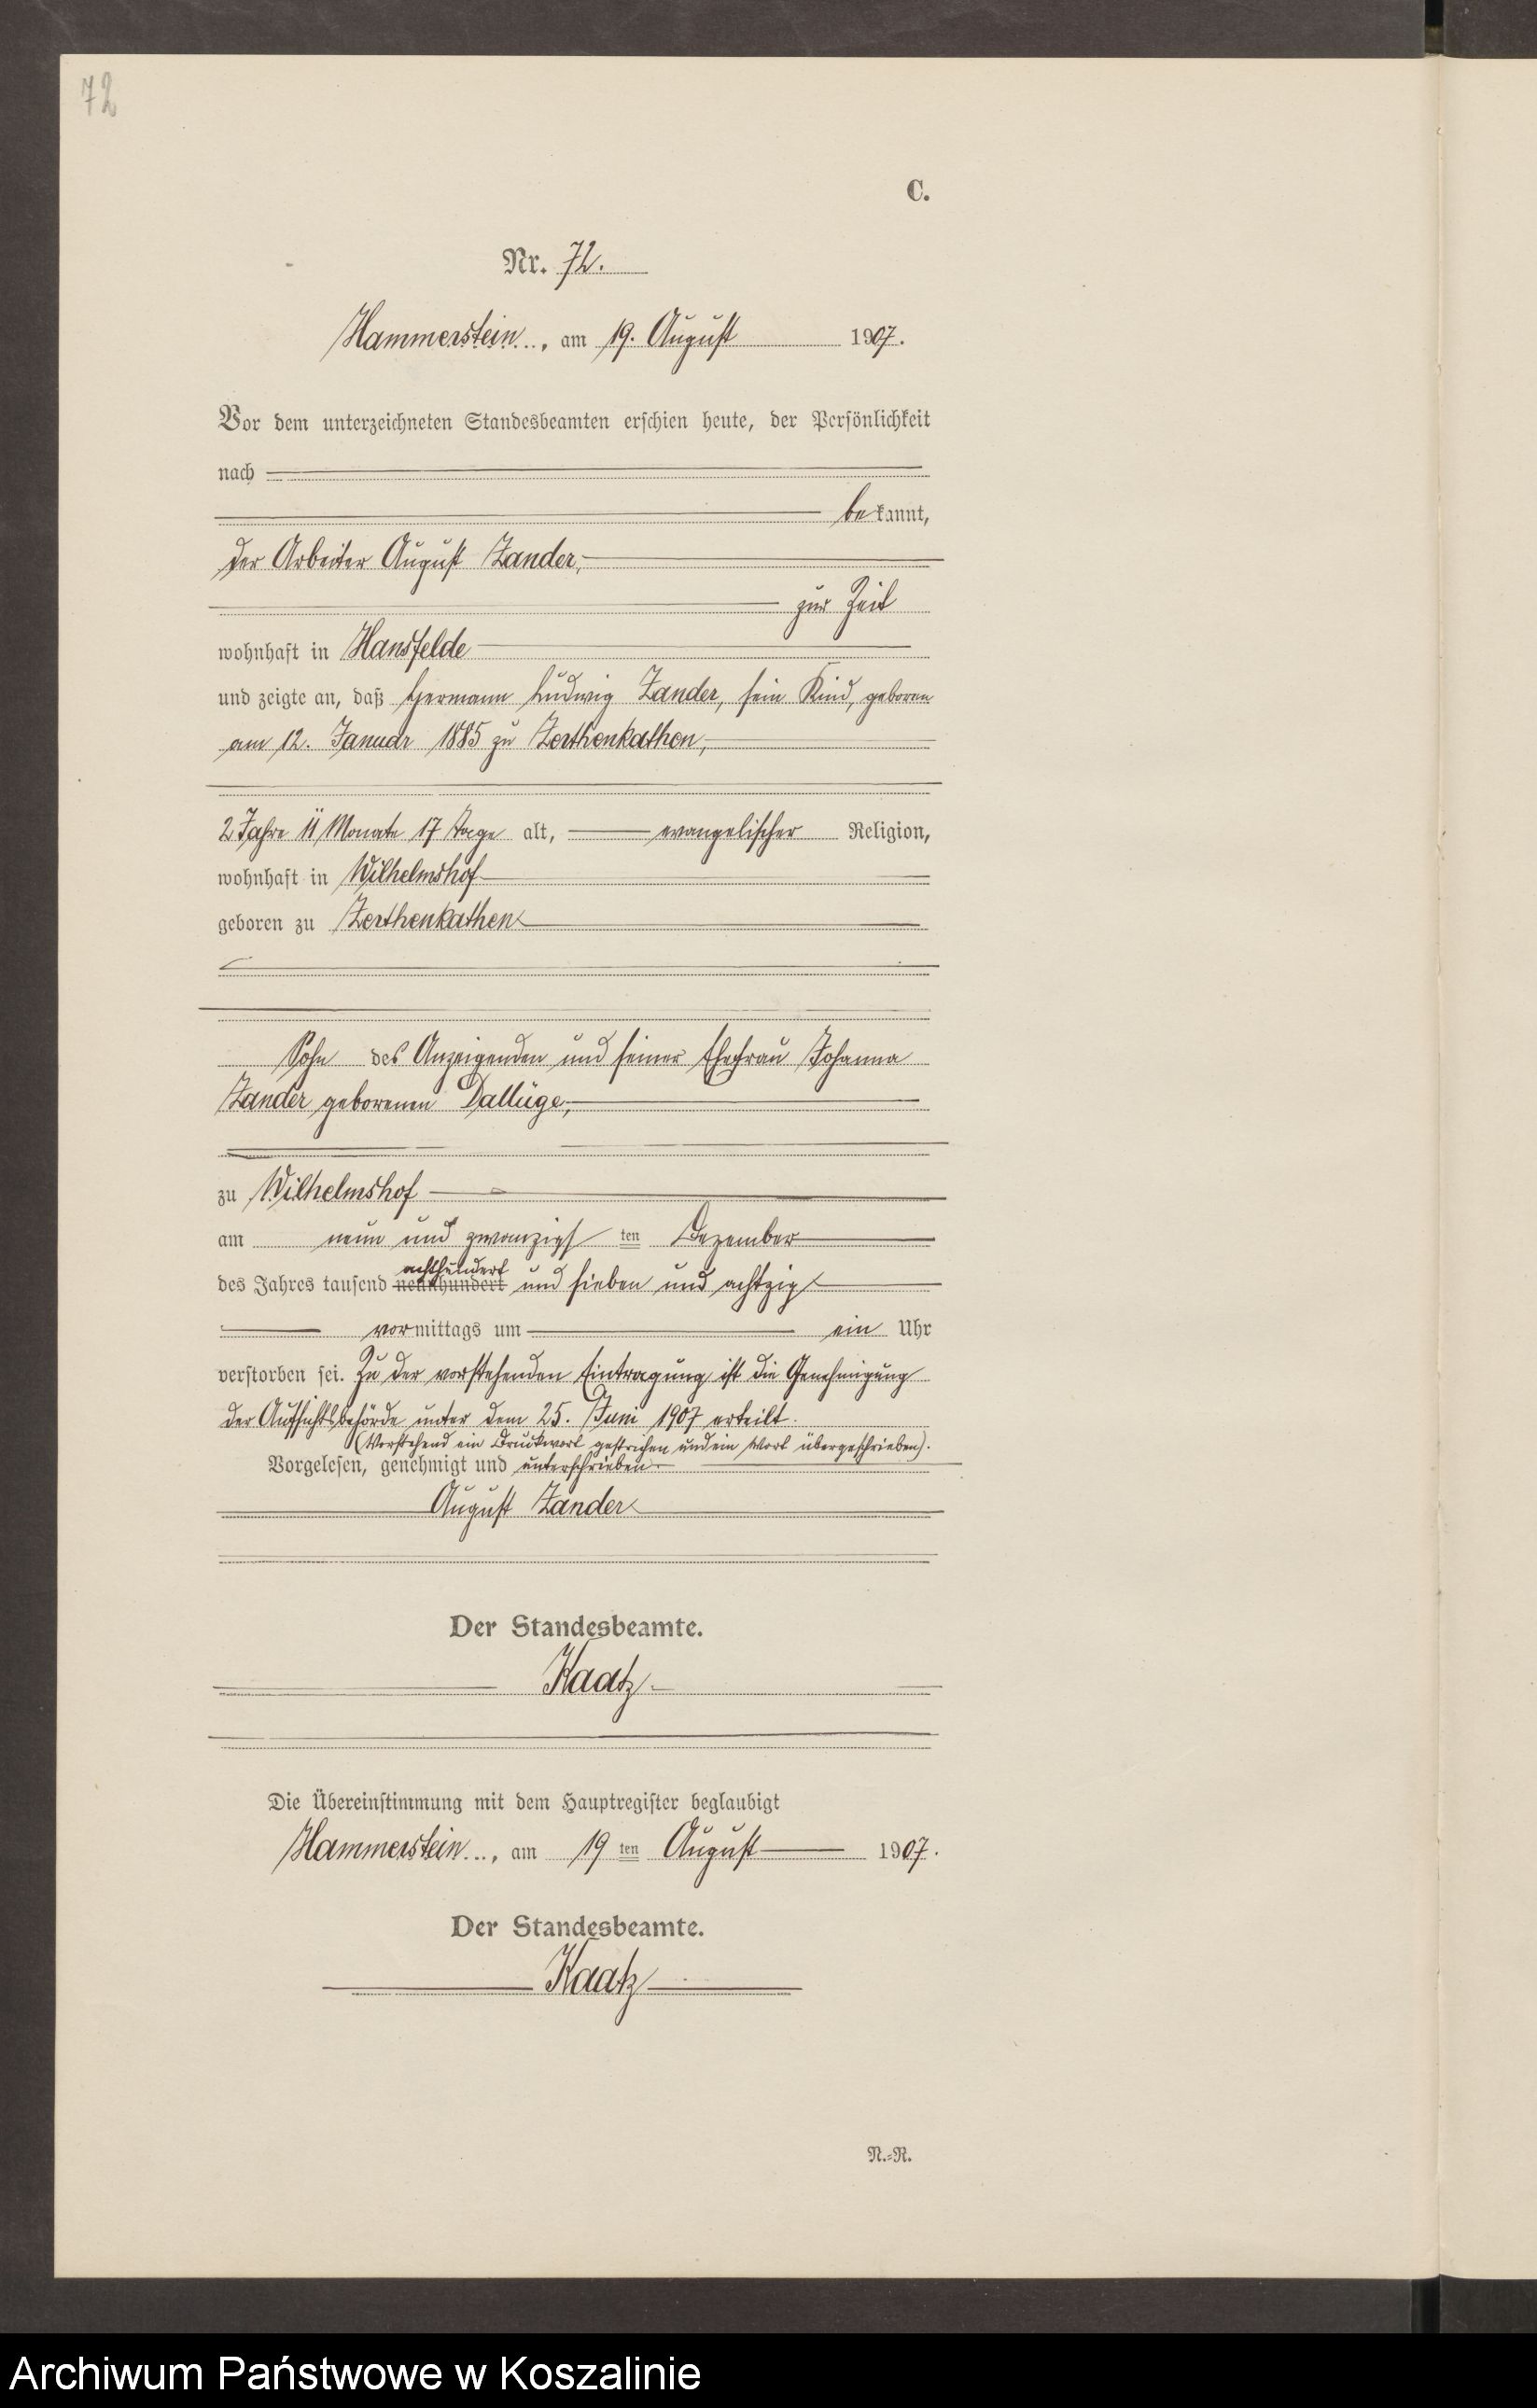 72
C.
Nr. 72.
Hammerstein, am 19. August 1907.
Vor dem unterzeichneten Standesbeamten erschien heute, der Persönlichkeit
nach
bekannt,
der Arbeiter August Zander,
zur Zeit
wohnhaft in Hansfelde
und zeigte an, daß Hermann Ludwig Zander, sein Kind, geboren
am 12. Januar 1885 zu Zerthenkathen,
2 Jahre 11 Monate 17 Tage alt, evangelischer Religion,
wohnhaft in Wilhelmshof
geboren zu Zerthenkathen
Sohn des Anzeigenden und seiner Ehefrau Johanna
Zander geborenen Dallüge,
zu Wilhelmshof
am neun und zwanzigsten Dezember
achthundert
des Jahres tausend neunhundert und sieben und achtzig
vormittags um ein Uhr
verstorben sei. Zu der vorstehenden Eintragung ist die Genehmigung
der Aufsichtsbehörde unter dem 25. Juni 1907 erteilt.
(Vorstehend ein Druckwort gestrichen und ein Wort übergeschrieben).
Vorgelesen, genehmigt und unterschrieben
August Zander
Der Standesbeamte.
Kaatz
Die Übereinstimmung mit dem Hauptregister beglaubigt
Hammerstein, am 19ten August 1907.
Der Standesbeamte.
Kaatz
N.=R.
Archiwum Państwowe w Koszalinie